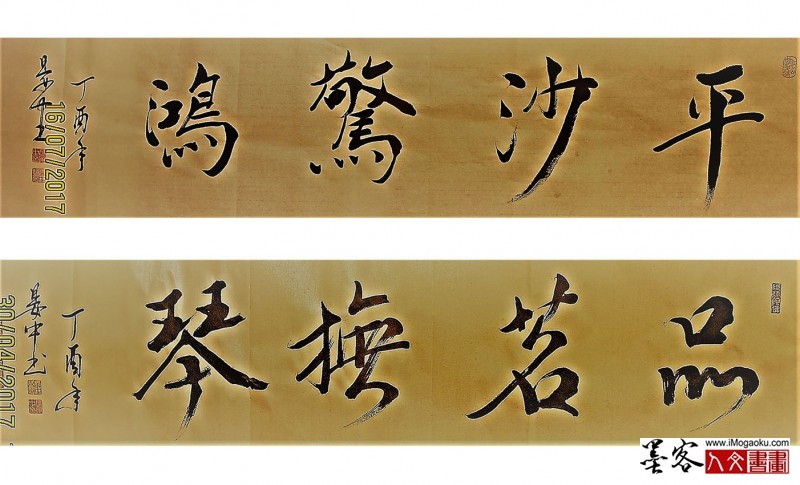 平沙驚鴻
丁酉年
16/07/2017
品茗撫琴
丁酉年
晏中书
30/04/2017
墨客
www.iMogaoku.com
人文書畫